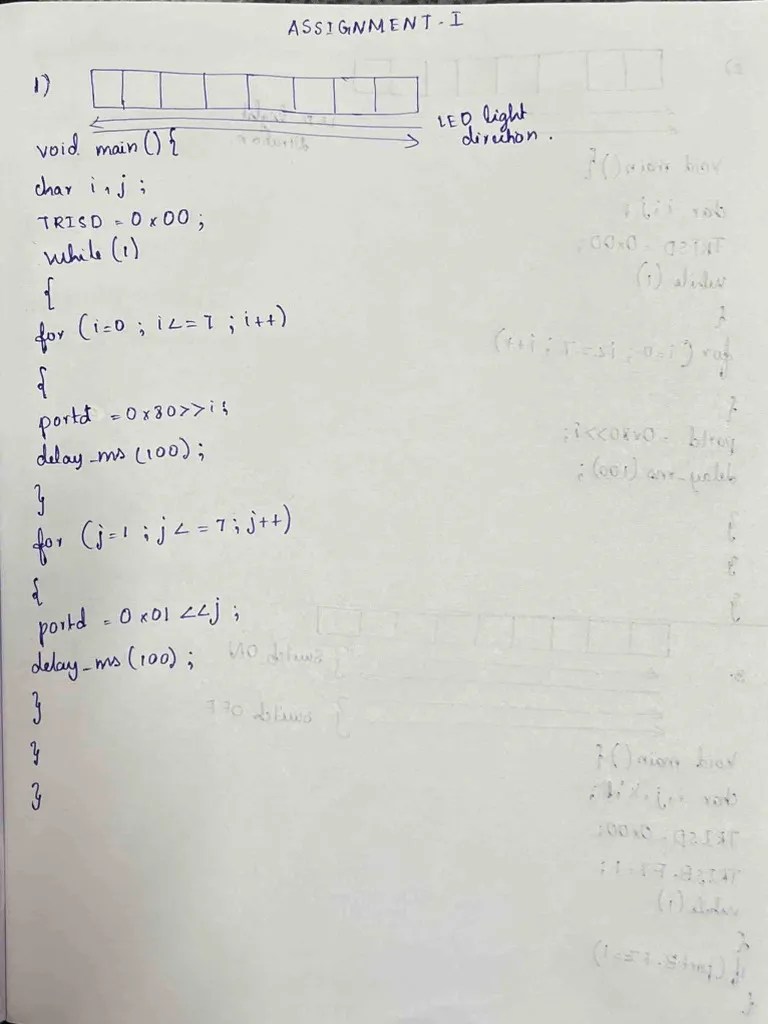 ASSIGNMENT - I
1)
LED light
direction .
void main () {
char i, j ;
TRISD = 0x00 ;
while (1)
{
for (i=0 ; i<=7 ; i++)
{
portd = 0x80>>i;
delay_ms (100) ;
}
for (j=1 ; j<=7 ; j++)
{
portd = 0x01 <<j ;
delay_ms (100) ;
}
}
}